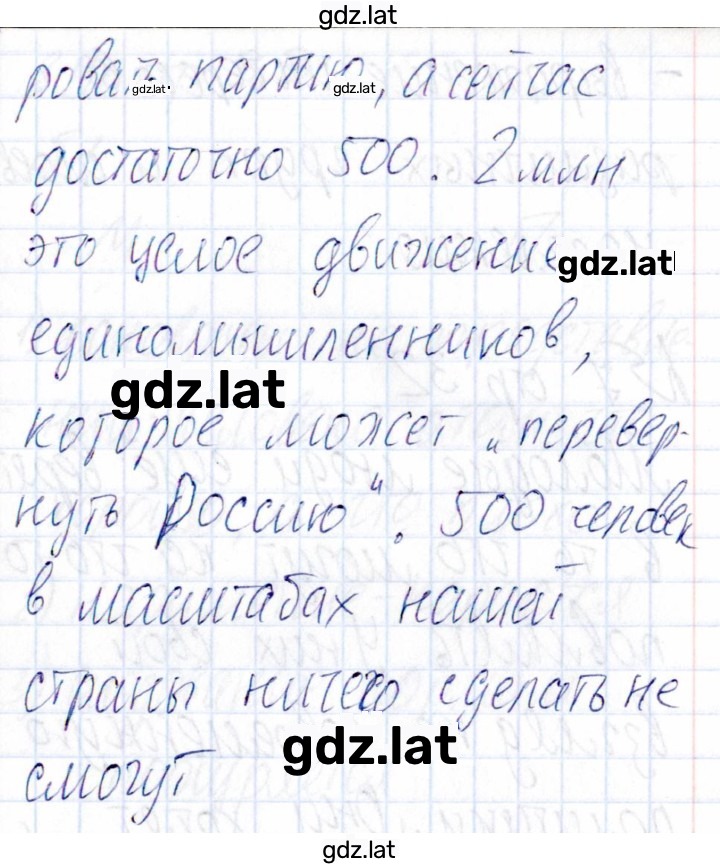 gdz.lat
ровать партию, а сейчас
gdz.lat gdz.lat
достаточно 500. 2 млн
это целое движение
gdz.lat
единомышленников,
gdz.lat
которое может „перевер-
нуть Россию". 500 человек
в масштабах нашей
страны ничего сделать не
gdz.lat
смогут
gdz.lat